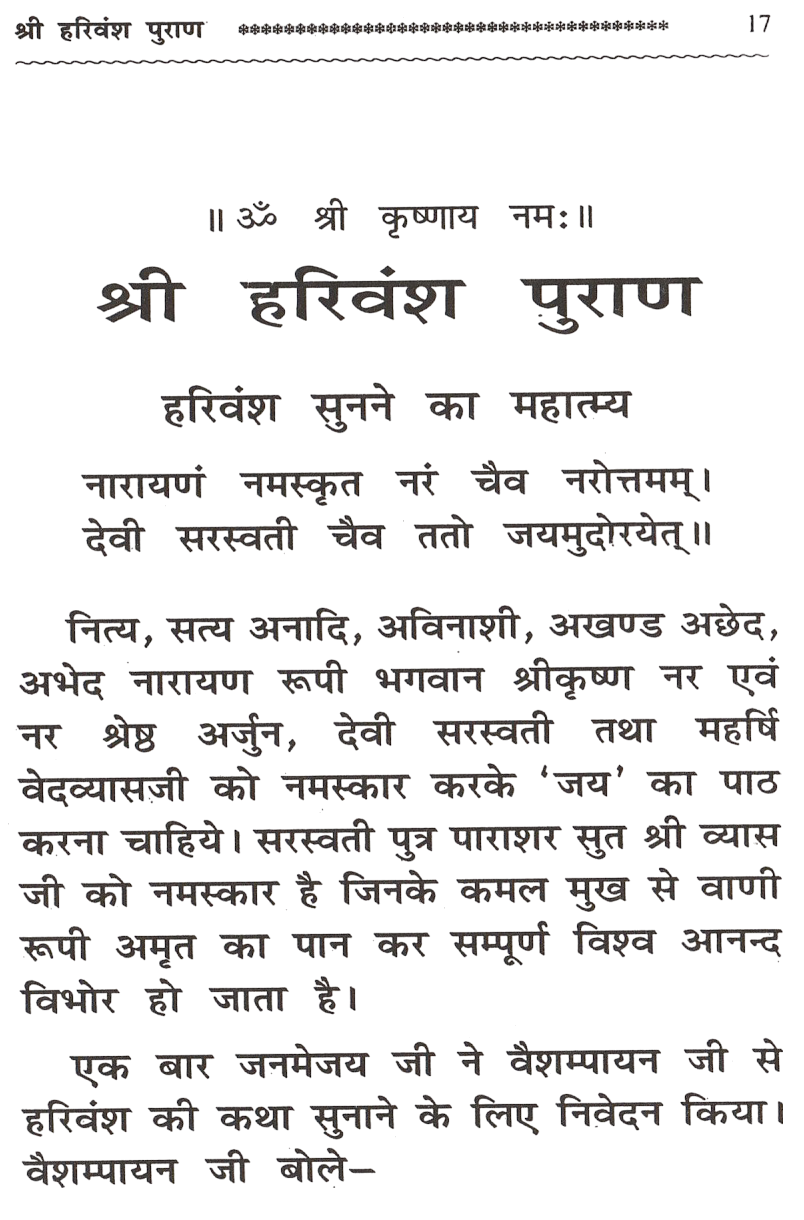 श्री हरिवंश पुराण ****************************************** 17
॥ ॐ श्री कृष्णाय नमः॥
श्री हरिवंश पुराण
हरिवंश सुनने का महात्म्य
नारायणं नमस्कृत नरं चैव नरोत्तमम्।
देवी सरस्वती चैव ततो जयमुदोरयेत्॥
नित्य, सत्य अनादि, अविनाशी, अखण्ड अछेद,
अभेद नारायण रूपी भगवान श्रीकृष्ण नर एवं
नर श्रेष्ठ अर्जुन, देवी सरस्वती तथा महर्षि
वेदव्यासजी को नमस्कार करके ‘जय’ का पाठ
करना चाहिये। सरस्वती पुत्र पाराशर सुत श्री व्यास
जी को नमस्कार है जिनके कमल मुख से वाणी
रूपी अमृत का पान कर सम्पूर्ण विश्व आनन्द
विभोर हो जाता है।
एक बार जनमेजय जी ने वैशम्पायन जी से
हरिवंश की कथा सुनाने के लिए निवेदन किया।
वैशम्पायन जी बोले–